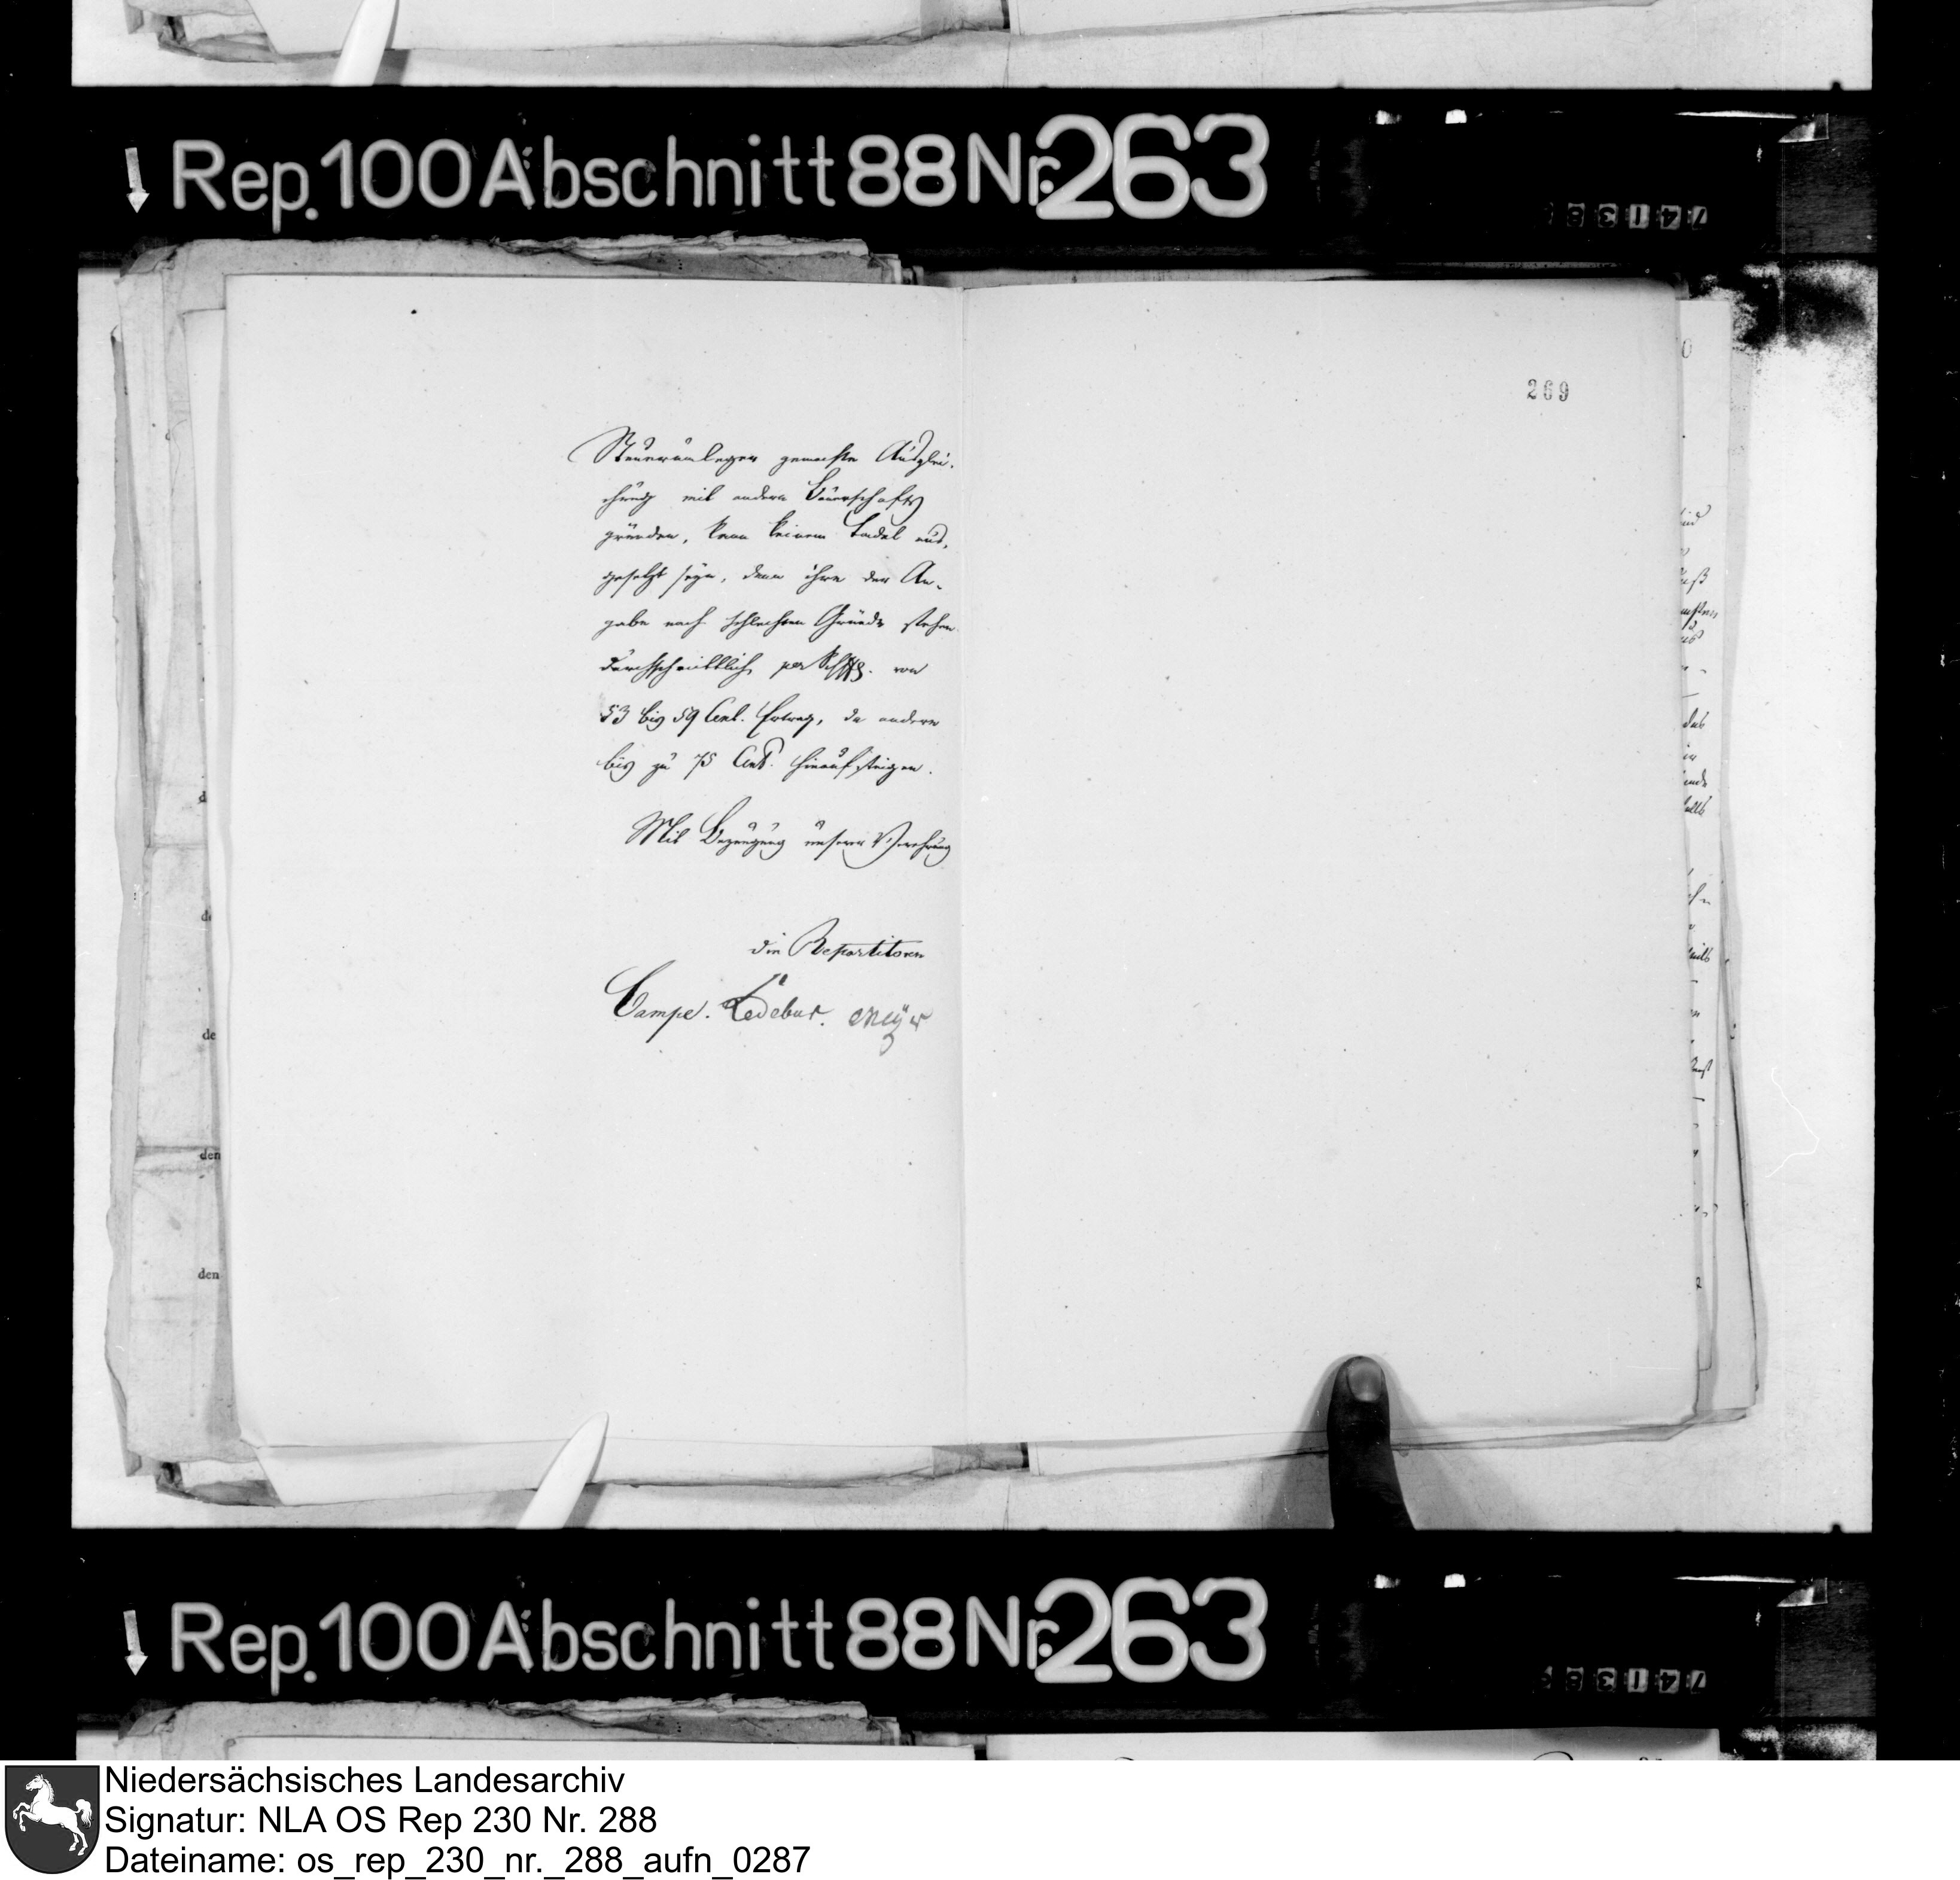 Rep. 100 Abschnitt 88 Nr. 263
269
Steueranlagen gemachte Ausglei-
chung mit andern Bauerschafts
gründen, kann keinem Tadel aus-
gesetzt seyn, denn ihre der An-
gabe nach schlechten Gründe stehen
durchschnittlich per von
53 bis 59 Cent. Ertrag, da andere
bis zu 75 Cent. hinaufsteigen.
Mit Bezeugung unserer Verehrung
die Repartitoren
Campe. Ledebur. Meÿer
den
den
Rep. 100 Abschnitt 88 Nr. 263
Niedersächsisches Landesarchiv
Signatur: NLA OS Rep 230 Nr. 288
Dateiname: os_rep_230_nr._288_aufn_0287